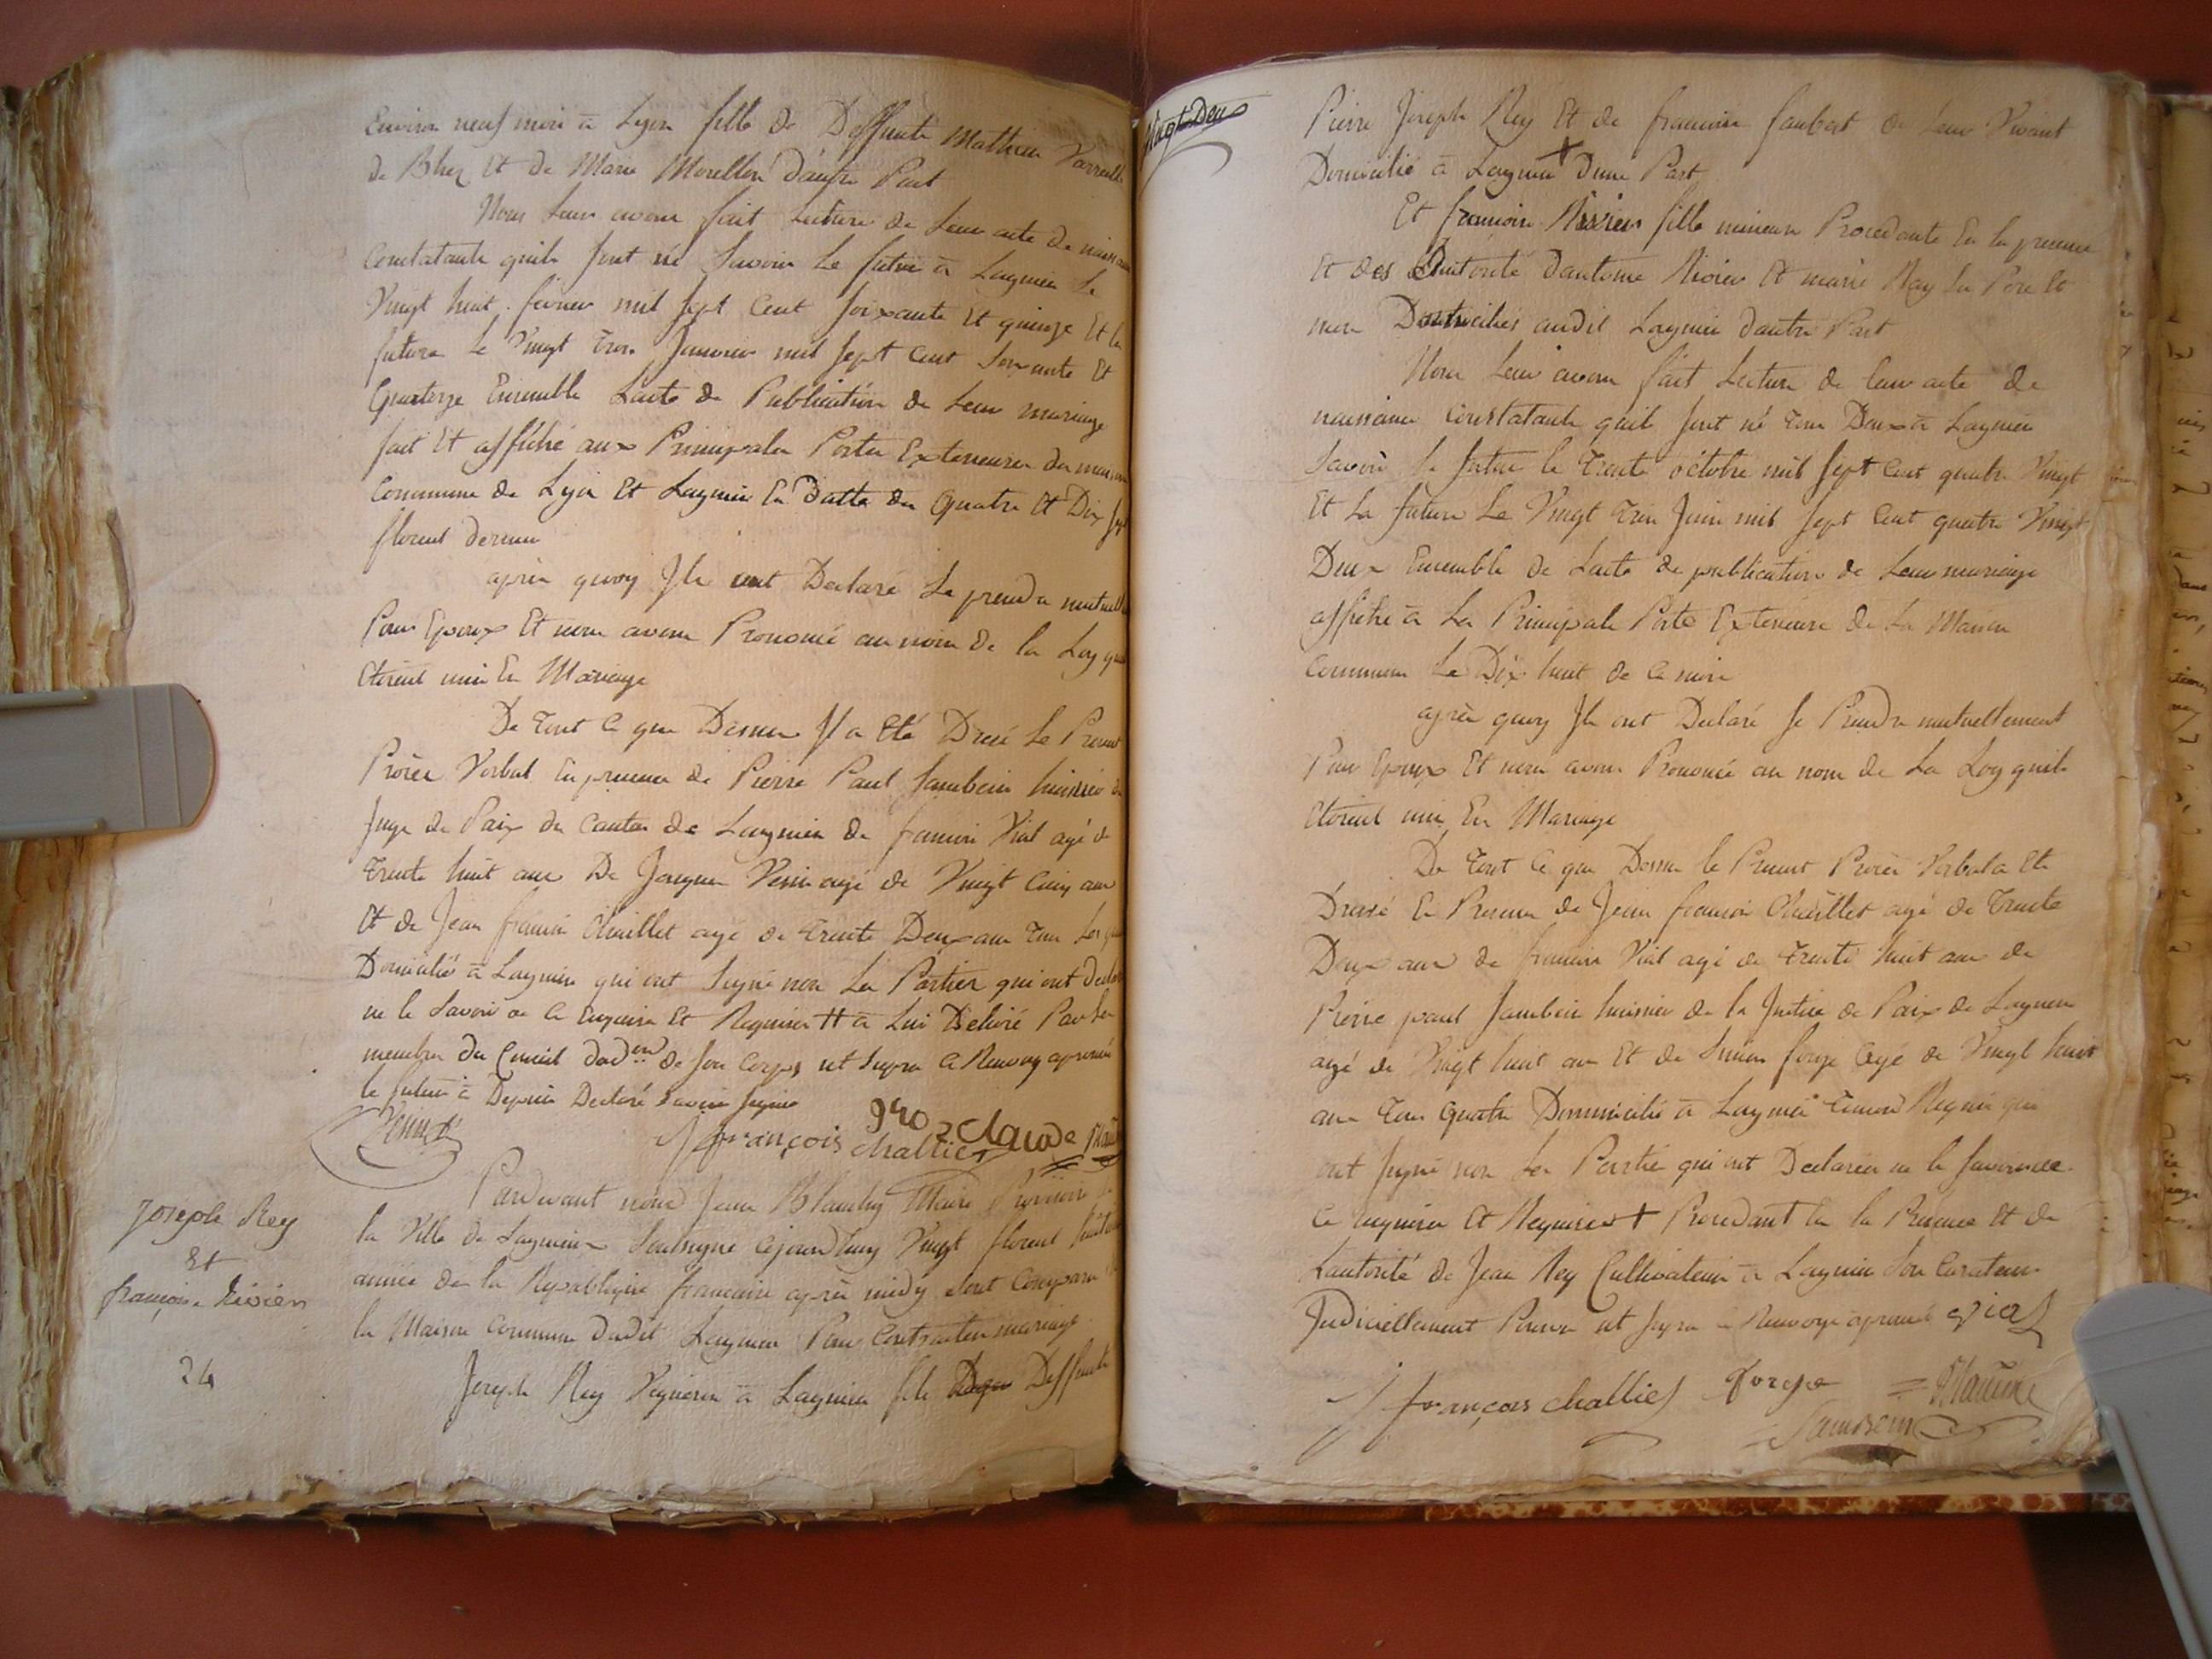 Environ neuf mois à Lyon fille de Deffunts Mathieu
de Bhez Et de Marie Morellon d'autre Part
Nous Leur avons fait Lecture de Leur acte de naissance
Constatants quils sont né Savoir Le futur à Lagnieu Le
Vingt huit fevrier mil sept Cent soixante Et quinze Et la
future Le Vingt Trois Janvier mil sept Cent Soixante Et
Quatorze Ensemble Lacte de Publication de Leur mariage
fait Et affiché aux Principales Portes Exterieures des maisons
Commune de Lyon Et Lagnieu En Datte des Quatre Et Dix Sept
floreal dernier
après quoy Ils ont Declaré Se prendre mutuell
Pour Epoux Et nous avons Prononcé au nom de la Loy quils
Etoient unis En Mariage
De Tout Ce que Dessus Il a Eté Dresé Le Present
Procès Verbal En presence de Pierre Paul Jambein huissier du
Juge de Paix du Canton de Lagnieu de francois Vial agé de
Trente huit ans De Jacques agé de Vingt Cinq ans
Et de Jean francois Challiet agé de trente Deux ans Tous Les
Domicilié à Lagnieu qui ont Signé non Les Parties qui ont Declaré
ne le Savoir de Ce Enquises Et Requises ++ à Lui Delivré Par Les
membres du Conseil dadon de son Corps ut supra Ce Renvoy aprouvé
le futur à Depuis Declaré savoir signer
J françois challiet gro claude
Pardevant nous Jean Blandin Maire Provisoire de
la Ville de Lagnieu Soussigné Cejourdhuy Vingt floreal huitieme
année de la Republique francaise après midy sont Comparu
la Maison Commune Dudit Lagnieu Pour Contracter mariage
Joseph Rey
Et
françoise Rivier
24
Joseph Rey Vigneron à Lagnieu fils Deffunts
Vingt Deux
Pierre Joseph Rey Et de francoise faubert de Leur Vivant
Domicilié à Lagnieu + Dune Part
Et francoise Rivier fille mineure Procedante En la presence
Et des Autorité Dantoine Rivier Et marie Ray Ses Pere Et
mere Domiciliés audit Lagnieu dautre Part
Nous Leur avons fait Lecture de Leur acte de
naissance Constatants quils sont né Tous Deux à Lagnieu
Savoir Le futur le Trente octobre mil sept Cent quatre Vingt
Et La future Le Vingt Trois Juin mil sept Cent quatre Vingt
Deux Ensemble de Lacte de publication de Leur mariage
affiché à La Principale Porte Exterieure de La Maison
Commune Le Dix huit de Ce mois
après quoy Ils ont Declaré Se Prendre mutuellement
Pour Epoux Et nous avons Prononcé au nom de La Loy quils
Etoient unis En Mariage
De Tout Ce que Dessus le Present Procès Verbal a Eté
Dressé En Presence de Jean francois Challiet agé de Trente
Deux ans de francois Vial agé de trente huit ans de
Pierre paul Jambein huissier de la Justice de Paix de Lagnieu
agé de Vingt huit ans Et de forge agé de Vingt huit
ans Tous Quatre Domicilié à Lagnieu Temoins Requis qui
ont signé non Les Parties qui ont Declarées ne le Savoir de
Ce enquises Et Requises + Procedant En la Presence Et de
Lautorité de Jean Rey Cultivateur à Lagnieu Son Curateur
Judiciellement Pourvu ut supra Ce Renvoye aprouvé vial
J françois challiet forge
Jambein